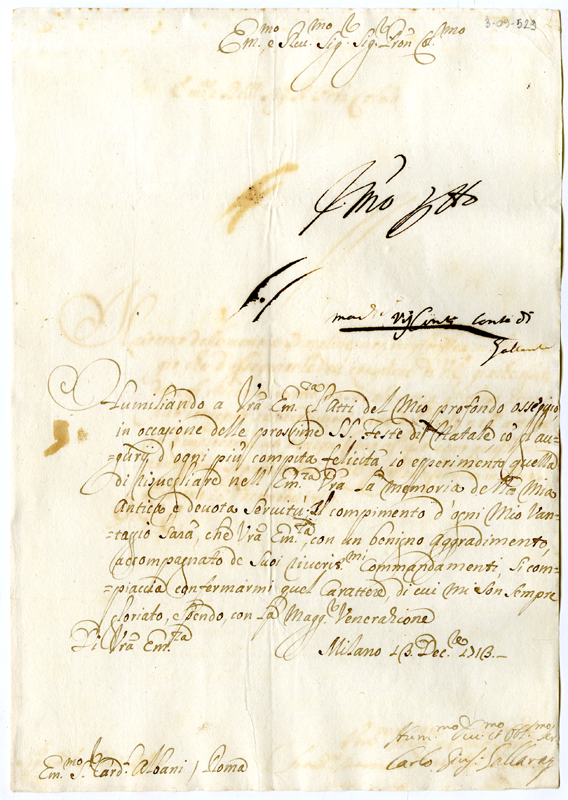 3-09-523
Em.mo e Rev.mo Sig.r Sig.r Pron Col.mo
Umiliando a Vra Em.za l'Atti del Mio profondo osseqio
in occasione delle prossime SS. Feste di Natale co' l au-
=gurij d'ogni più compita felicità, io esperimento quella
di risvegliare nell' Em.za Vra la memoria della Mia
Antica e devota Servitù: Il compimento d'ogni Mio Van-
=tagio Sarà, che Vra Em.za, con un benigno Aggradimento,
accompagnato de Suoi riveris.mi Commandamenti Si com-
=piaccia confermarmi quel Carattere di cui mi Son Sempre
gloriato, e
con la Magg.r Venerazione
Di Vra Em.za
Milano 13. Dec.bre 1713.
Hum.mo
Em.mo S.r Card.l Albani / Roma
Carlo Gius.